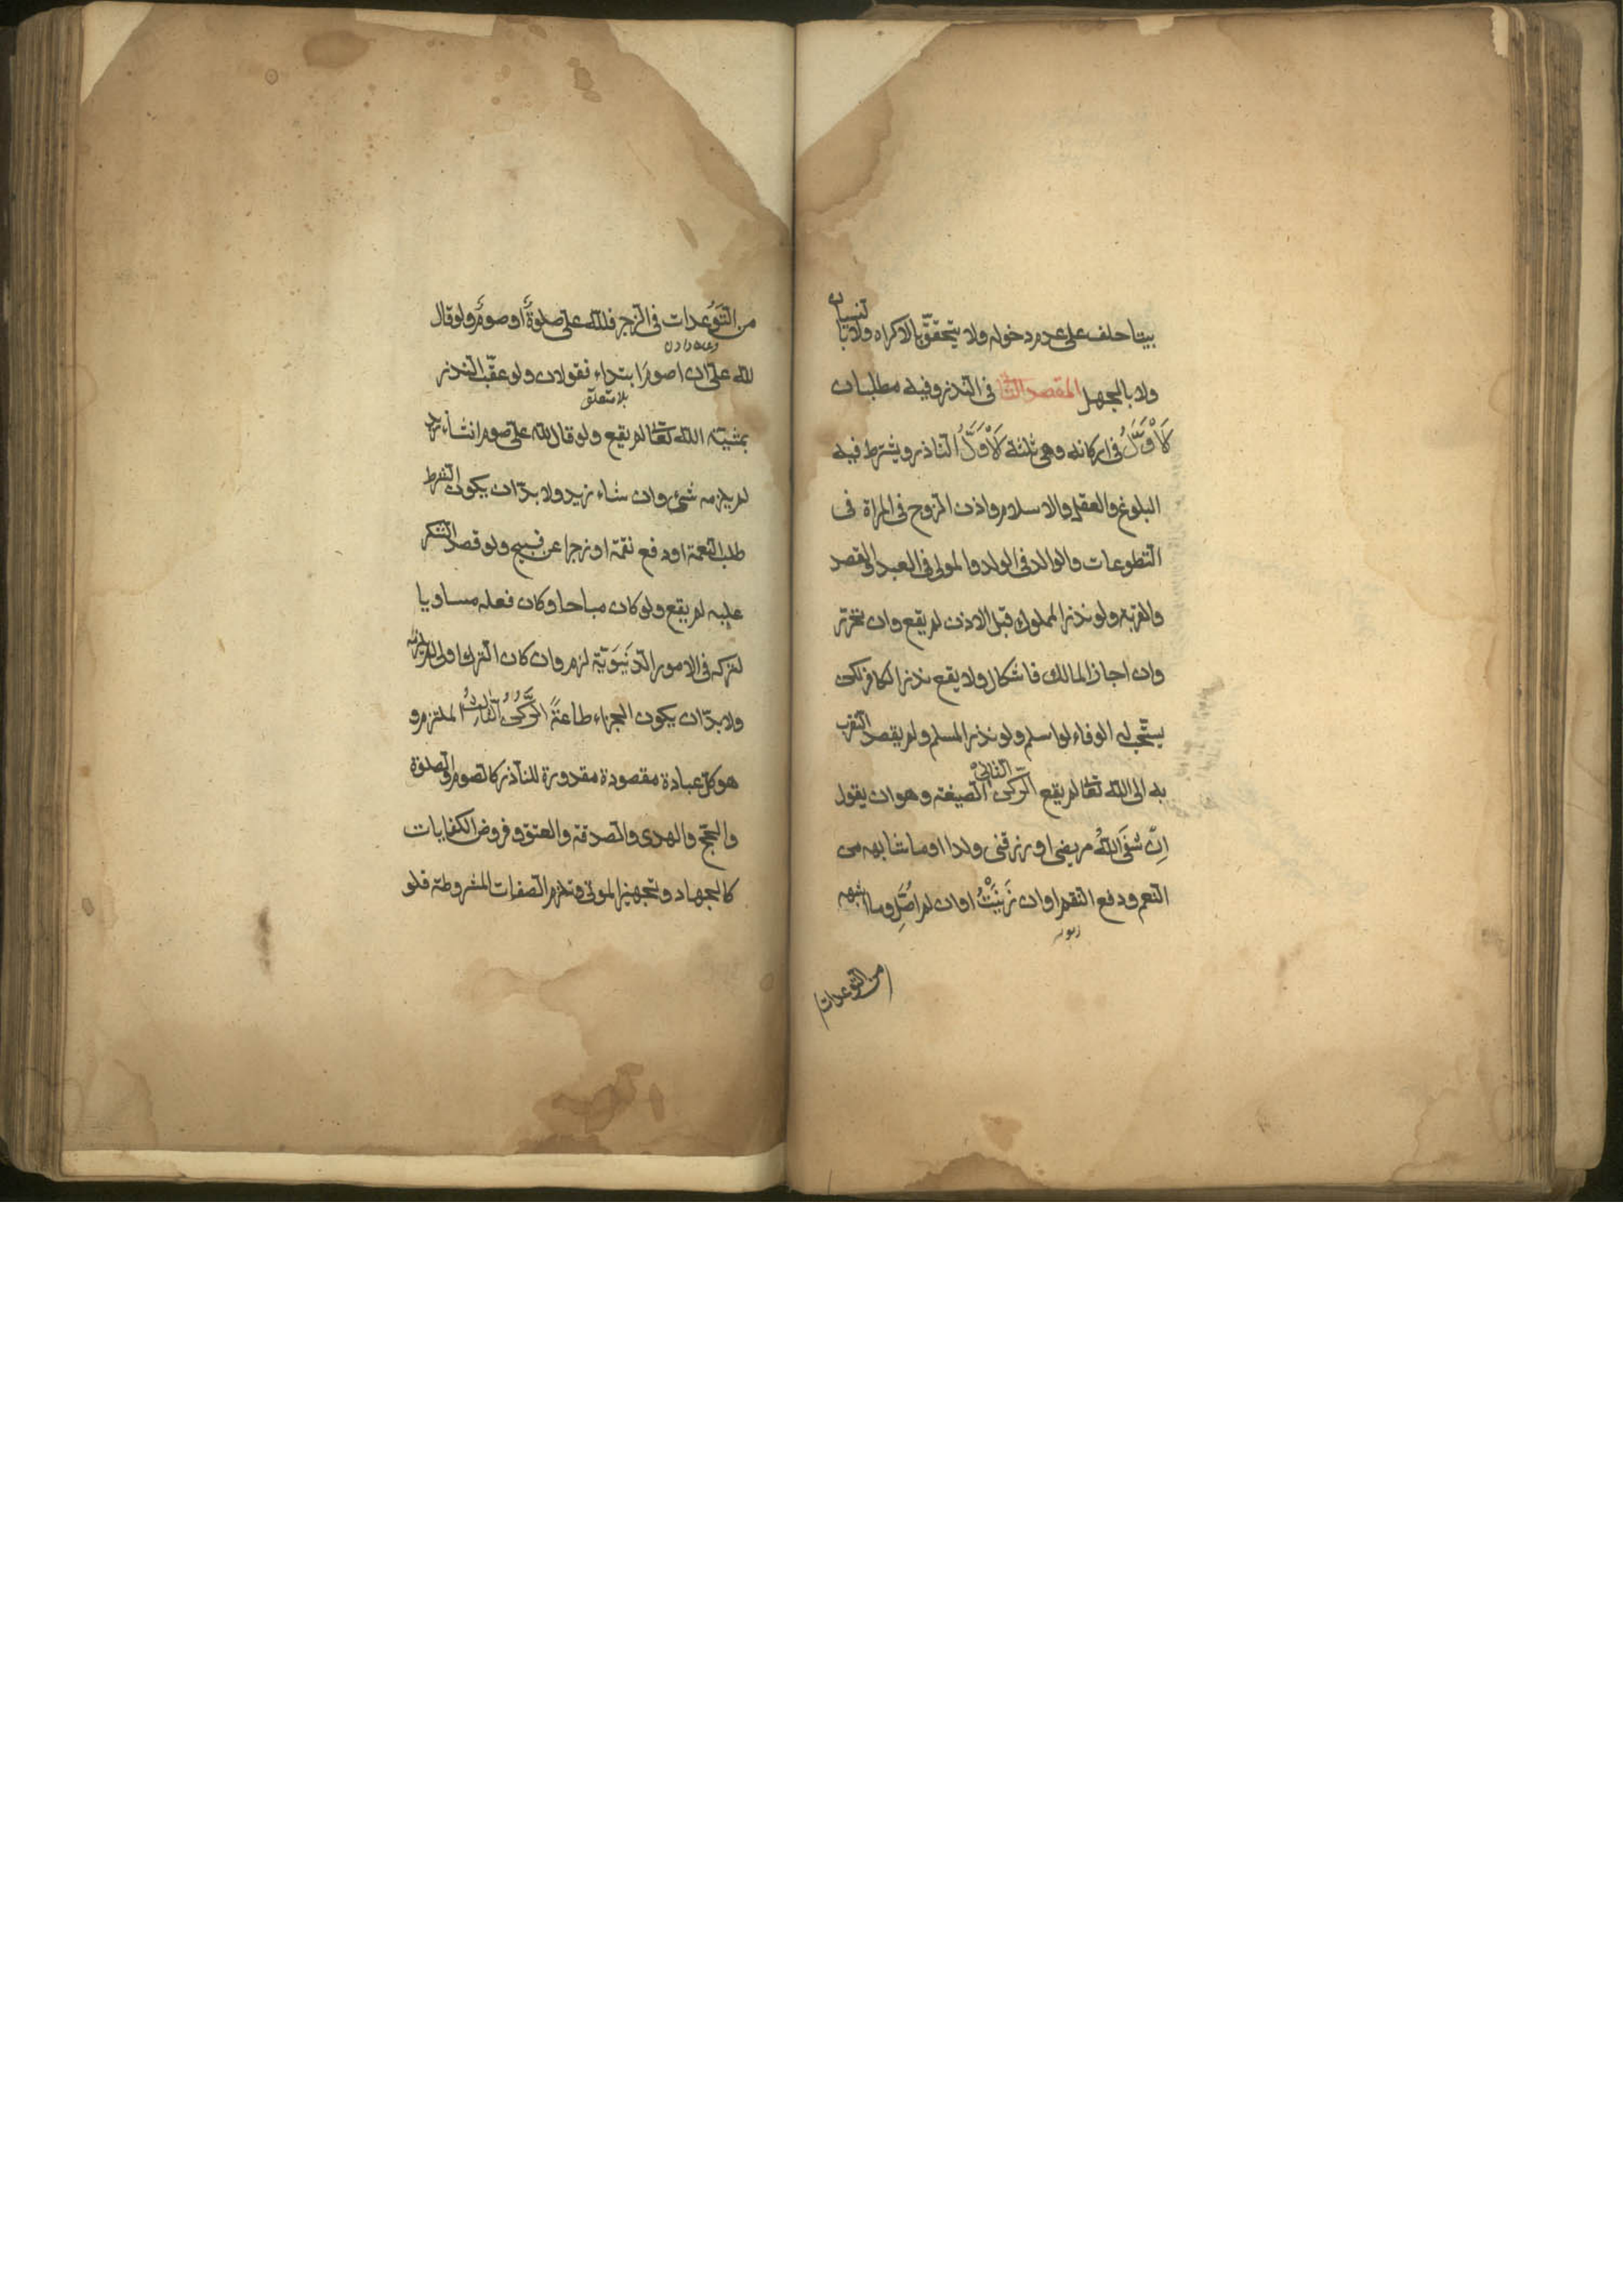 بيتا حلف على عدم دخوله ولا يتحقق بالاكراه ولا بالنسيان
ولا بالجهل المقصد الثانى فى النذر وفيه مطلبان
الاَوَّلُ فى اركانه وهى ثلثة الاَوَّلُ الناذر ويشترط فيه
البلوغ والعقل والاسلام واذن الزوج فى المراة فى
التطوعات والوالد فى الولد والمولى فى العبد والقصد
والقربة ولو نذر المملوك قبل الاذن لم يقع وان تحرّر
وان اجاز المالك فاشكال ولا يقع نذر الكافر لكن
يستحب له الوفاء لو اسلم ولو نذر المسلم ولم يقصد التقرب
به الى الله تعالى لم يقع الركن الثانى الصيغة وهو ان يقول
اِنْ شَفَى اللّٰهُ مريضى او رزقنى ولدا او ما شابهه من
النعم ودفع النقم او ان زَنَيْتُ او ان لم اُصَلِّ وما اشبهه
من التوعدات
من التَوَعدات فى الزجر فللّه علىّ صلوةٌ او صومٌ ولو قال
وعده دادن
للّه علىّ ان اصوم ابتداء فقولان ولو عقّب النذر
بلا تعلق
بمشيّة الله تعالى لم يقع ولو قال للّه علىّ صوم ان شاء زيد
لم يلزمه شىء وان شاء زيد ولا بدّ ان يكون الشرط
طلبا لنعمة او دفع نقمة او زجرا عن قبيح ولو قصد الشكر
عليه لم يقع ولو كان مباحا وكان فعله مساويا
لتركه فى الامور الدنيَوية لزم وان كان الترك اولى لم يلزمه
ولا بدّ ان يكون الجزاء طاعةً الرُّكنُ الثالِثُ الملتزم و
هو كل عبادة مقصودة مقدورة للناذر كالصوم والصلوة
والحجّ والهدى والصدقة والعتق وفروض الكفايات
كالجهاد وتجهيز الموتى وتلزم الصفات المشروطة فلو